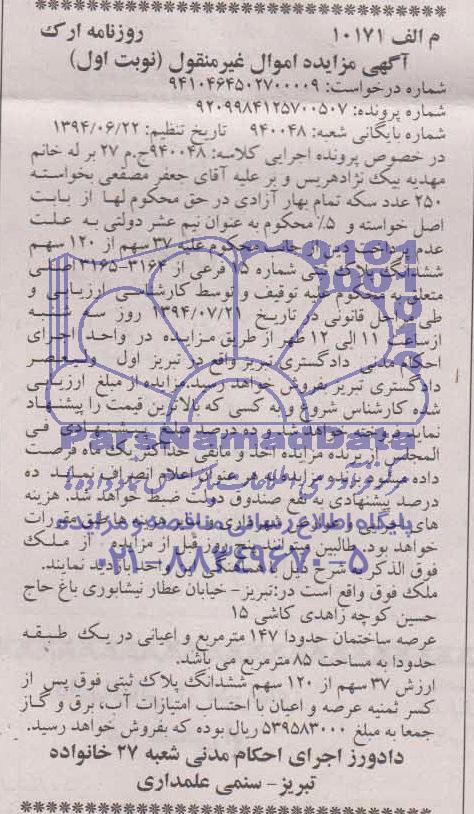 م الف ۱۰۱۷۱ روزنامه ارک
آگهی مزایده اموال غیرمنقول (نوبت اول)
شماره درخواست: ۹۴۱۰۴۶۴۵۰۲۷۰۰۰۰۹
شماره پرونده: ۹۲۰۹۹۸۴۱۲۵۷۰۰۵۰۷
شماره بایگانی شعبه: ۹۴۰۰۴۸ تاریخ تنظیم: ۱۳۹۴/۰۶/۲۲
در خصوص پرونده اجرایی کلاسه: ۹۴۰۰۴۸ج.م ۲۷ بر له خانم
مهدیه بیک نژادهریس و بر علیه آقای جعفر مصقعی بخواسته
۲۵۰ عدد سکه تمام بهار آزادی در حق محکوم لها از بابت
اصل خواسته و ۵٪ محکوم به عنوان نیم عشر دولتی به علت
عدم پرداخت دین از جانب محکوم علیه ۳۷ سهم از ۱۲۰ سهم
ششدانگ پلاک ثبتی شماره ۱۵ فرعی از ۳۱۶۴-۳۱۶۵ اصلی
متعلق به محکوم علیه توقیف و توسط کارشناسی ارزیابی و
طی مراحل قانونی در تاریخ ۱۳۹۴/۰۷/۲۱ روز سه شنبه
ازساعت ۱۱ الی ۱۲ ظهر از طریق مزایده در واحد اجرای
احکام مدنی دادگستری تبریز واقع در تبریز اول ولیعصر
دادگستری تبریز بفروش خواهد رسید.مزایده از مبلغ ارزیابی
شده کارشناس شروع و به کسی که بالاترین قیمت را پیشنهاد
نماید فروخته خواهد شد و ده درصد مبلغ پیشنهادی فی
المجلس از برنده مزایده اخذ و مابقی حداکثر یک ماه فرصت
داده میشود برنده مزایده به هر عنوان اعلام انصراف نماید ده
درصد پیشنهادی به نفع صندوق دولت ضبط خواهد شد. هزینه
های و شهرداری و سایر هزینه ها طبق مقررات
خواهد بود. طالبین میتوانند پنج روز قبل از مزایده از ملک
فوق الذکر به شرح ذیل با هماهنگی این واحد بازدید نمایند.
ملک فوق واقع است در:تبریز- خیابان عطار نیشابوری باغ حاج
حسین کوچه زاهدی کاشی ۱۵
عرصه ساختمان حدودا ۱۴۷ مترمربع و اعیانی در یک طبقه
حدودا به مساحت ۸۵ مترمربع می باشد.
ارزش ۳۷ سهم از ۱۲۰ سهم ششدانگ پلاک ثبتی فوق پس از
کسر ثمنیه عرصه و اعیان با احتساب امتیازات آب، برق و گاز
جمعا به مبلغ ۵۳۹۵۸۳۰۰۰ ریال بوده که بفروش خواهد رسید.
دادورز اجرای احکام مدنی شعبه ۲۷ خانواده
تبریز- سنمی علمداری
ParsNamadData
پایگاه اطلاع رسانی مناقصه و مزایده
۰۲۱-۸۸۳۴۹۶۷۰-۵